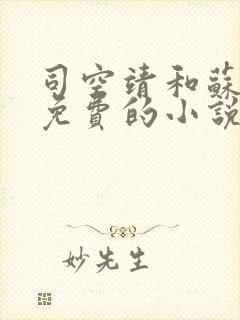 司空靖和蘇
免費的小說
妙先生